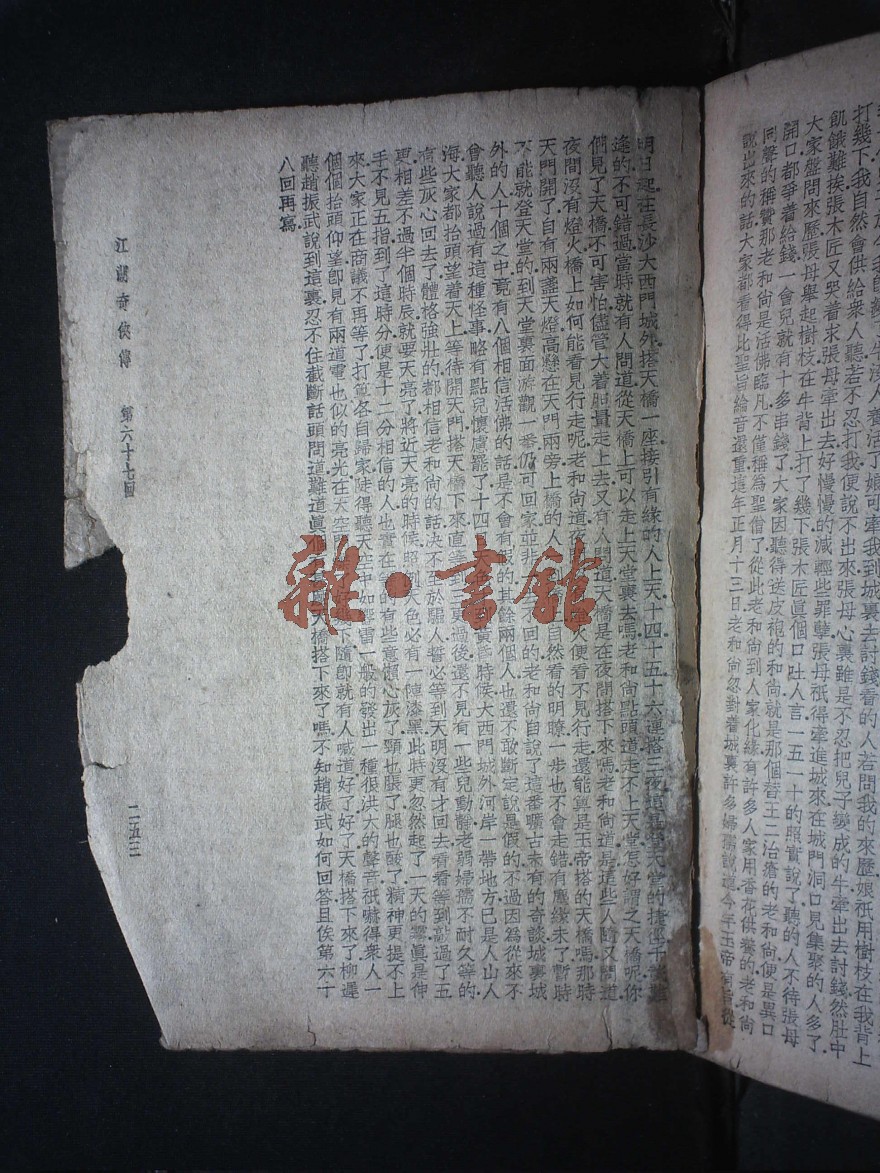 打幾下我自然會供給衆人聽若不忍打我便說不出來張母心裏雖是不忍把兒子變成的牛牽出去討錢然肚中
飢餓難挨張木匠又哭着求張母牽出去好慢慢的減輕些罪孽張母祇得牽進城來在城門洞口見集聚的人多了
大家盤問來歷張母舉起樹枝在牛背上打了幾下張木匠眞個口吐人言一五一十的照實說了聽的人不待張母
開口都爭着給錢一會兒就有十多串錢了大家因聽得送皮袍的和尙就是那個替王二治瘡的老和尙便是異口
同聲的稱贊那老和尙是活佛臨凡不僅稱爲聖僧了從此老和尙到人家化緣有許多人家用香花供養的老和尙
說出來的話大家都看得比聖旨綸音還重這年正月十三日老和尙忽對着城裏許多婦孺說道今年玉帝有旨從
明日起在長沙大西門城外搭天橋一座接引有緣的人上天十四十五十六連搭三夜這是登天堂的捷徑千載難
逢的不可錯過當時就有人問道從天橋上可以走上天堂裏去嗎老和尙點頭道走不上天堂怎好謂之天橋呢你
們見了天橋不可害怕儘管大着胆量走上去又有人問道天橋是在夜間搭下來嗎老和尙道是這些人隨又問道
夜間沒有燈火橋上如何能看見行走呢老和尙道 火便看不見行走還能算是玉帝搭的天橋嗎那時
天門開了自有兩盞天燈高懸在天門兩旁上橋的人 自然看的明瞭一步也不會走錯有塵緣未了暫時
不能就登天堂的到天堂裏面遊觀一番仍可回家並非 不回的老和尙自說了這番曠古未有的奇談城裏城
外的人十個之中竟有八個相信活佛的話是不會有假的 餘兩個人也還不敢斷定說是假的不過因爲從來不
會聽人說過有這種怪事略有點兒懷慮罷了十四 黃昏時候大西門城外河岸一帶地方已是人山人
海大家都抬頭望着天上等待開天門搭天橋下來直等到 更過後還不見有一些兒動靜老弱婦孺不耐久等的
有些灰心回去了體格強壯的都相信老和尙的話決不至於騙人誓必等到天明沒有才回去看看等到敲過了五
更相差不過半個時辰就要天亮了將近天亮的時候照例天色必有一陣漆黑此時更忽然起了一天的霧眞是伸
手不見五指到了這時分便是十二分相信的人也實在 有些意懶心灰了頸也脹了腿也酸了精神更提不上
來大家正在商議不再等了打算各自歸家陡得聽天空中如響雷一般的發出一種很洪大的聲音祇嚇得衆人一
個個抬頭仰望卽見有兩道電也似的亮光在天空 下隨卽就有人喊道好了好了天橋搭下來了柳遲
聽趙振武說到這裏忍不住截斷話頭問道難道眞 天橋搭下來了嗎不知趙振武如何回答且俟第六十
八回再寫
江湖奇俠傳 第六十七回 二五三
雜·書館